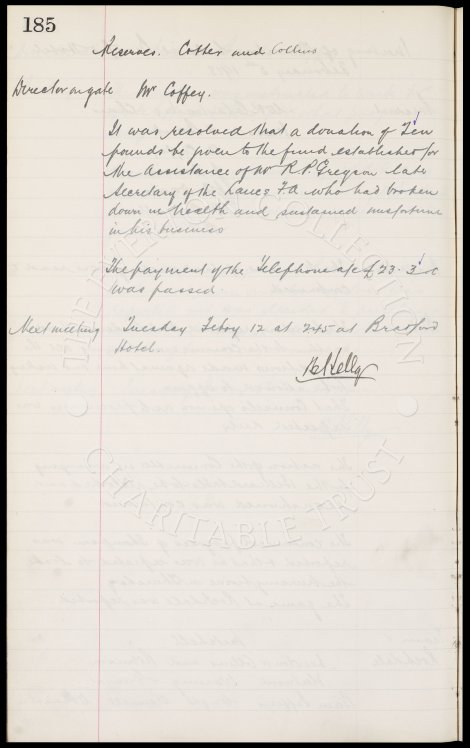 185
Reserves. Cotter and Collins
Director on gate Mr Coffey.
It was resolved that a donation of Ten
pounds be given to the fund established for
the assistance of Mr R. P. Gregson late
Secretary of the Lancs F.A. who had broken
down in health and sustained misfortune
in his business
The payment of the Telephone a/c £23. 3. 0
was passed.
Next meeting Tuesday Febry 12 at 2.45 at Bradford
Hotel.
THE EVERTON COLLECTION
CHARITABLE TRUST